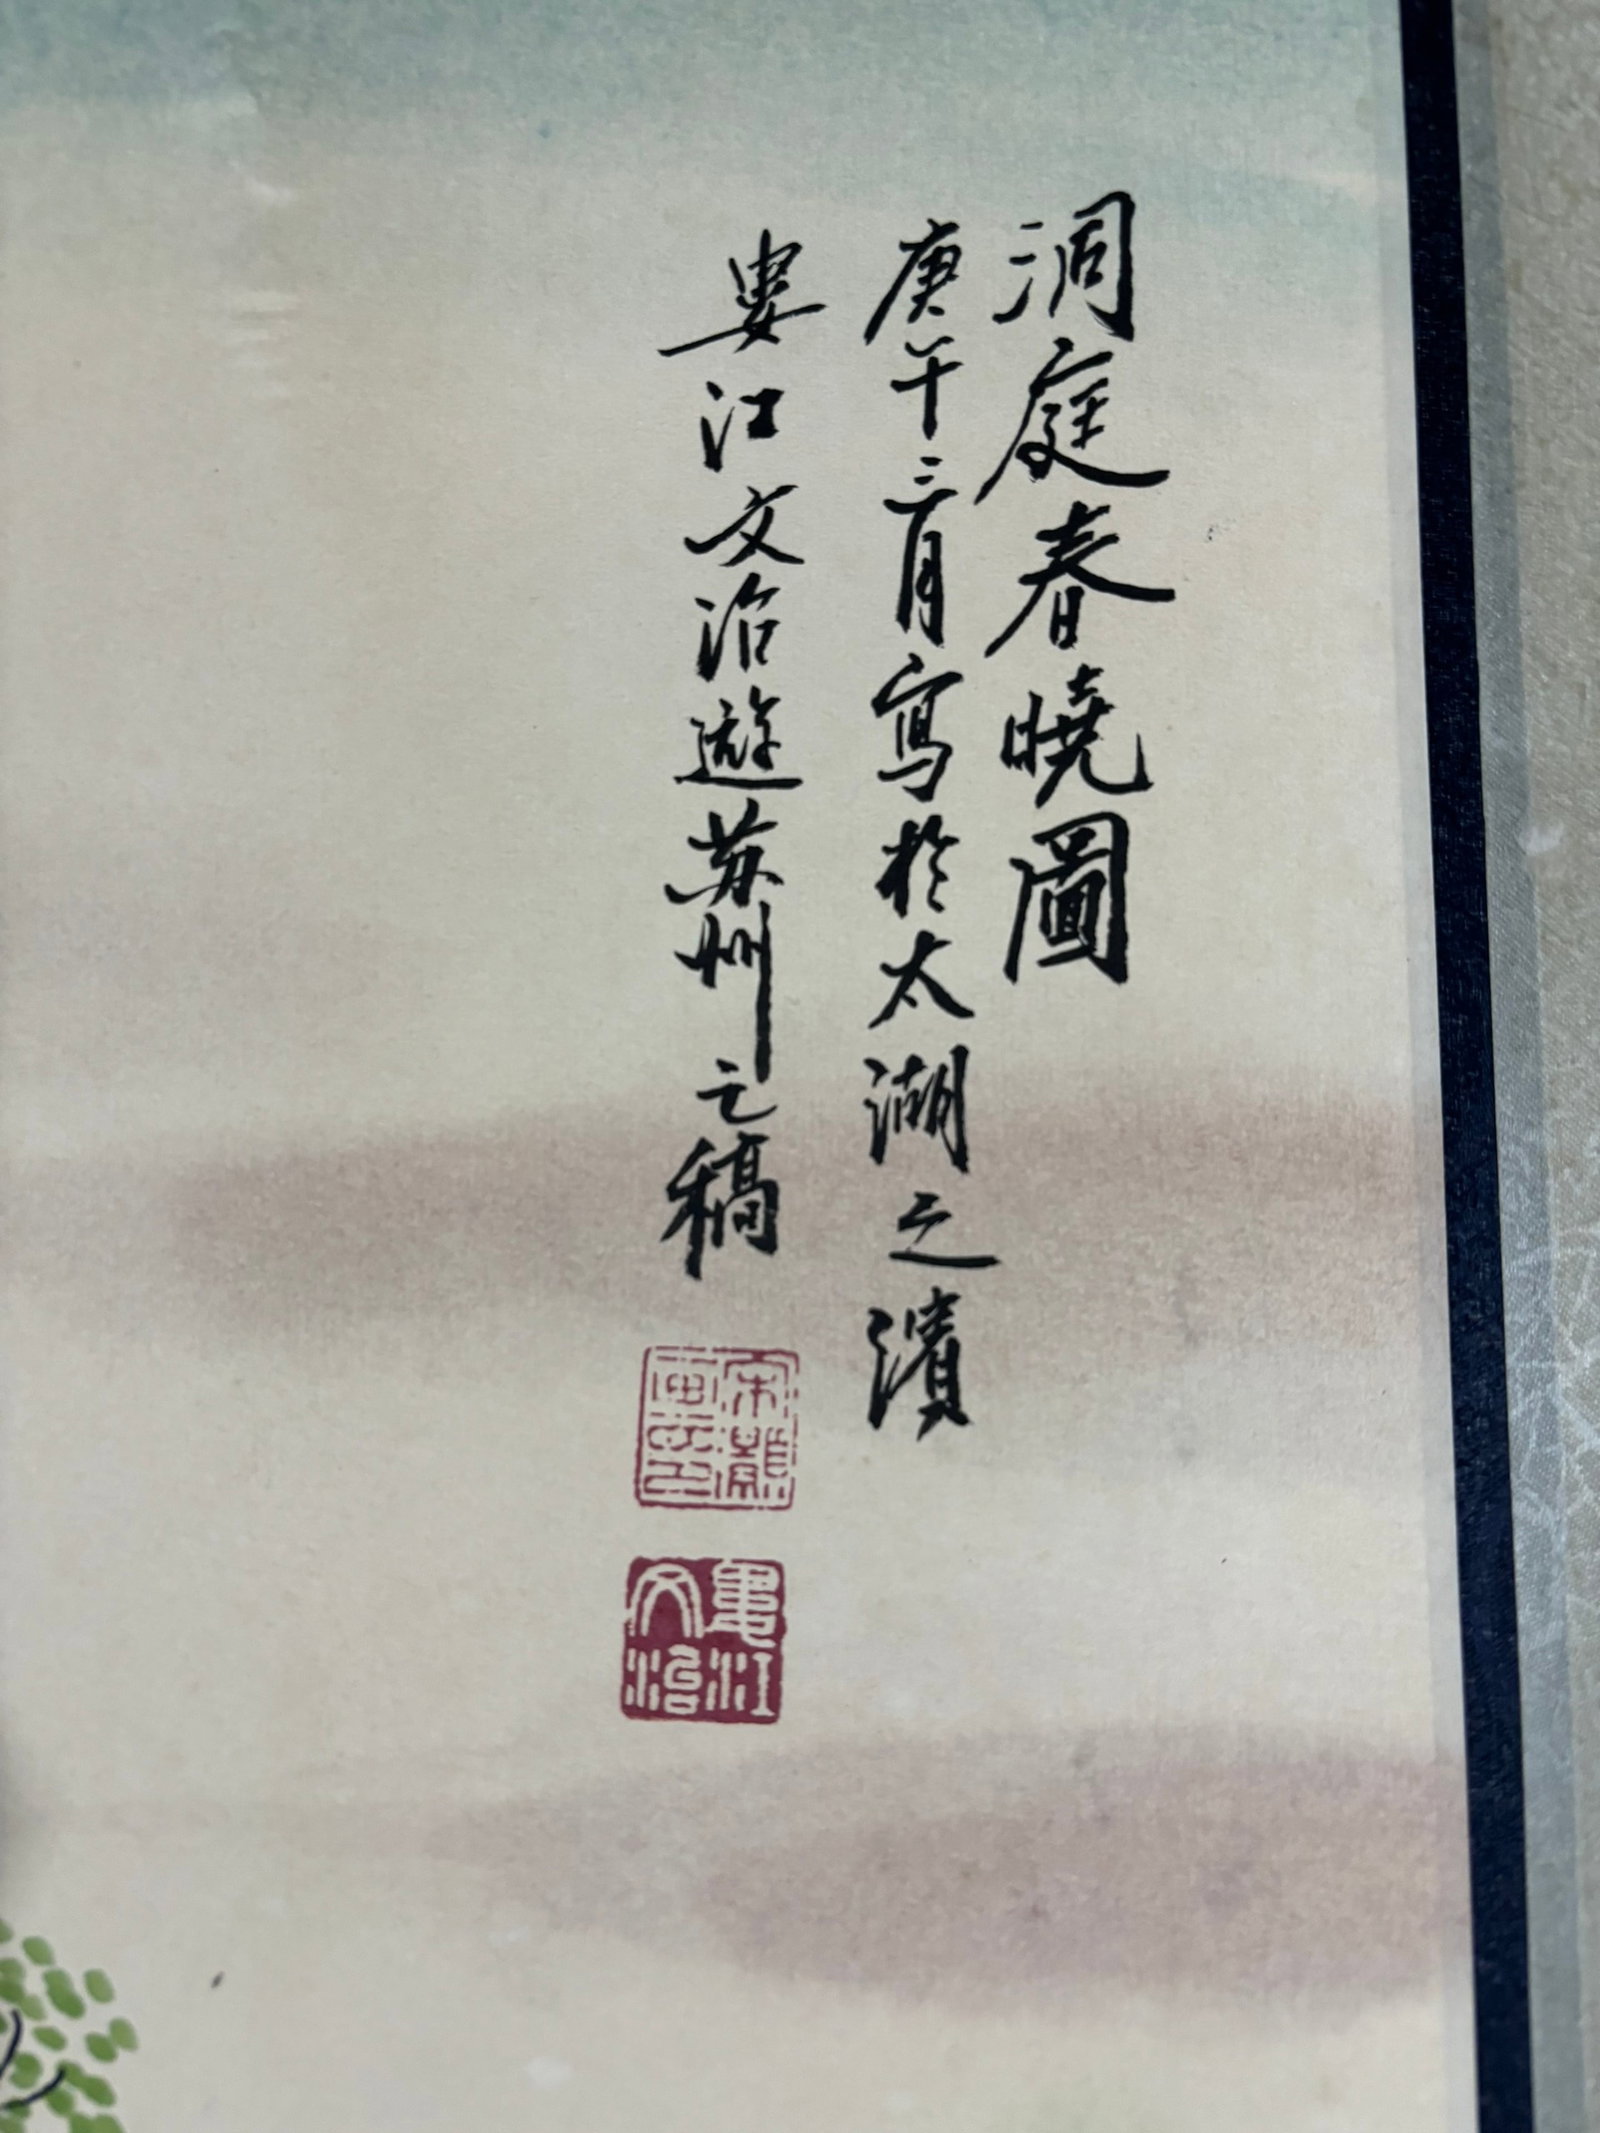 洞庭春曉圖
庚午三月寫於太湖之濱
婁江文治遊苏州之稿
宋灝畫印
婁江文治